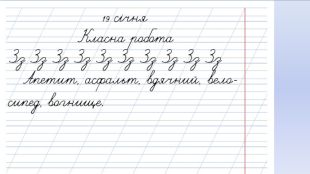 19 січня
Класна робота
Зз Зз Зз Зз Зз Зз Зз Зз Зз Зз
Апетит, асфальт, вдячний, вело-
сипед, вогнище.